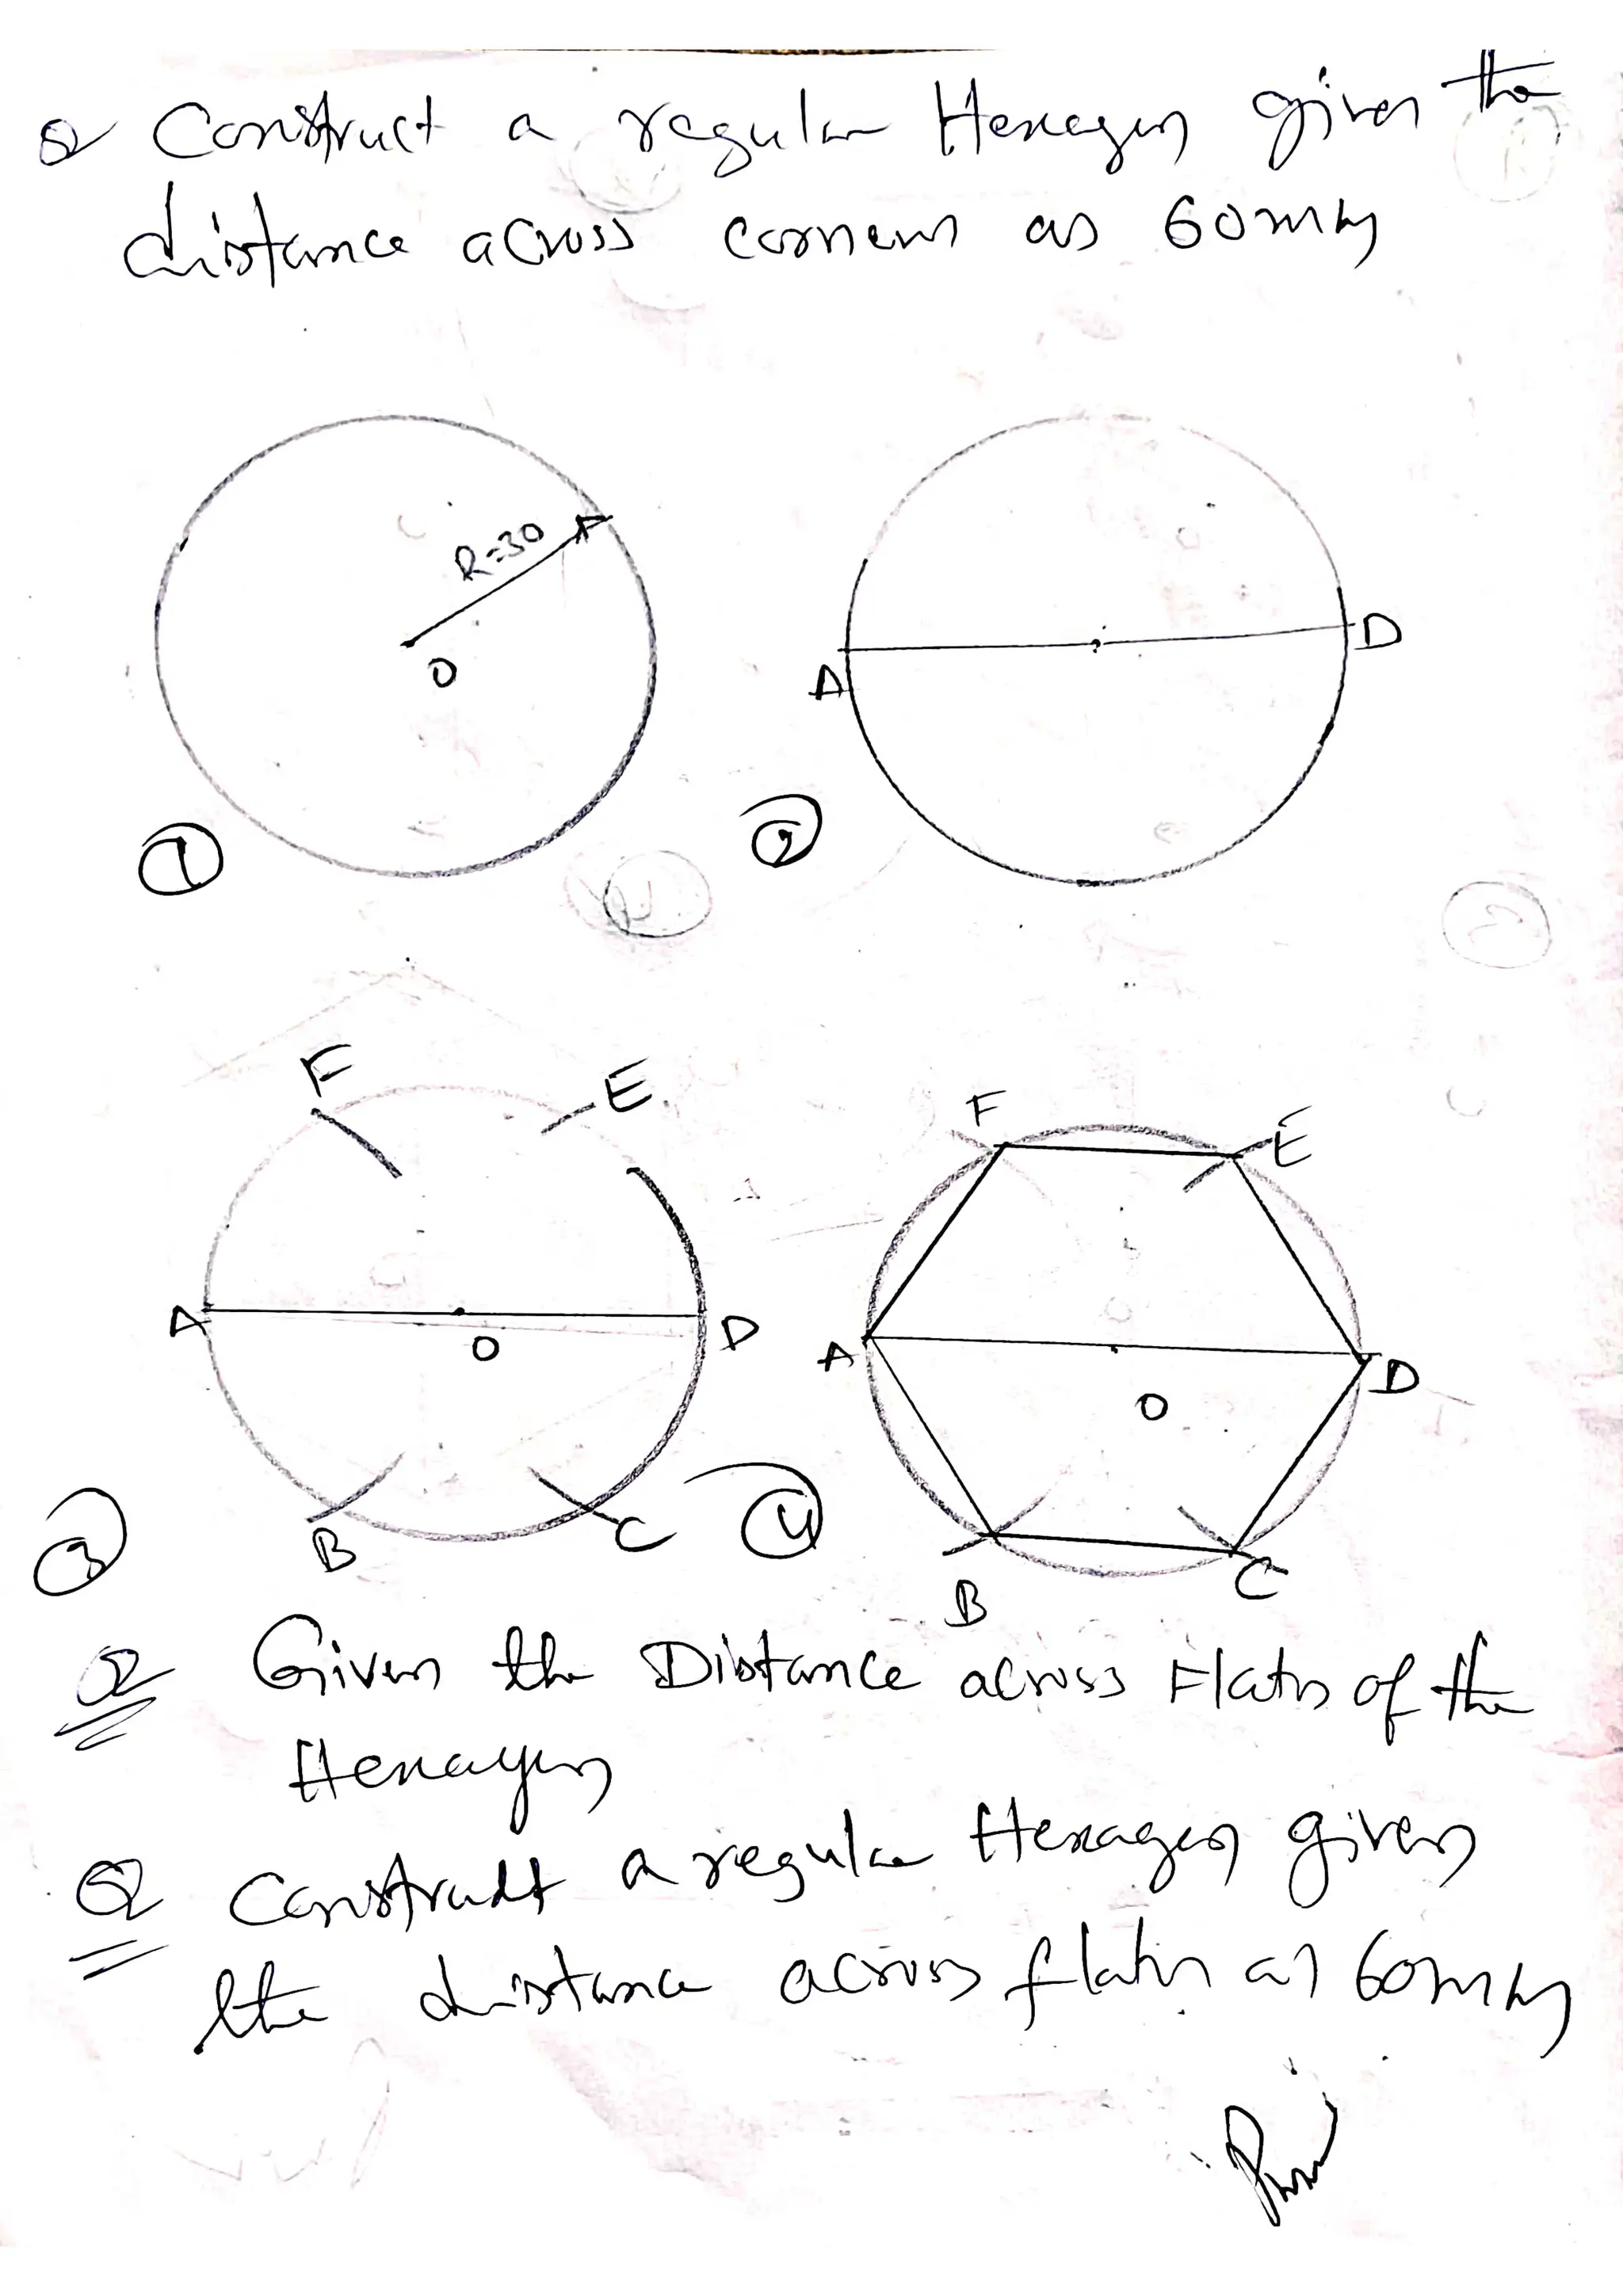 Q Construct a regular Hexagon given the
distance across corners as 60mm
R=30
O
①
A
D
②
F
E
A
O
D
B
C
③
F
E
A
O
D
B
C
④
Q Given the Distance across Flats of the
Hexagon
Q Construct a regular Hexagon given
the distance across flats as 60mm